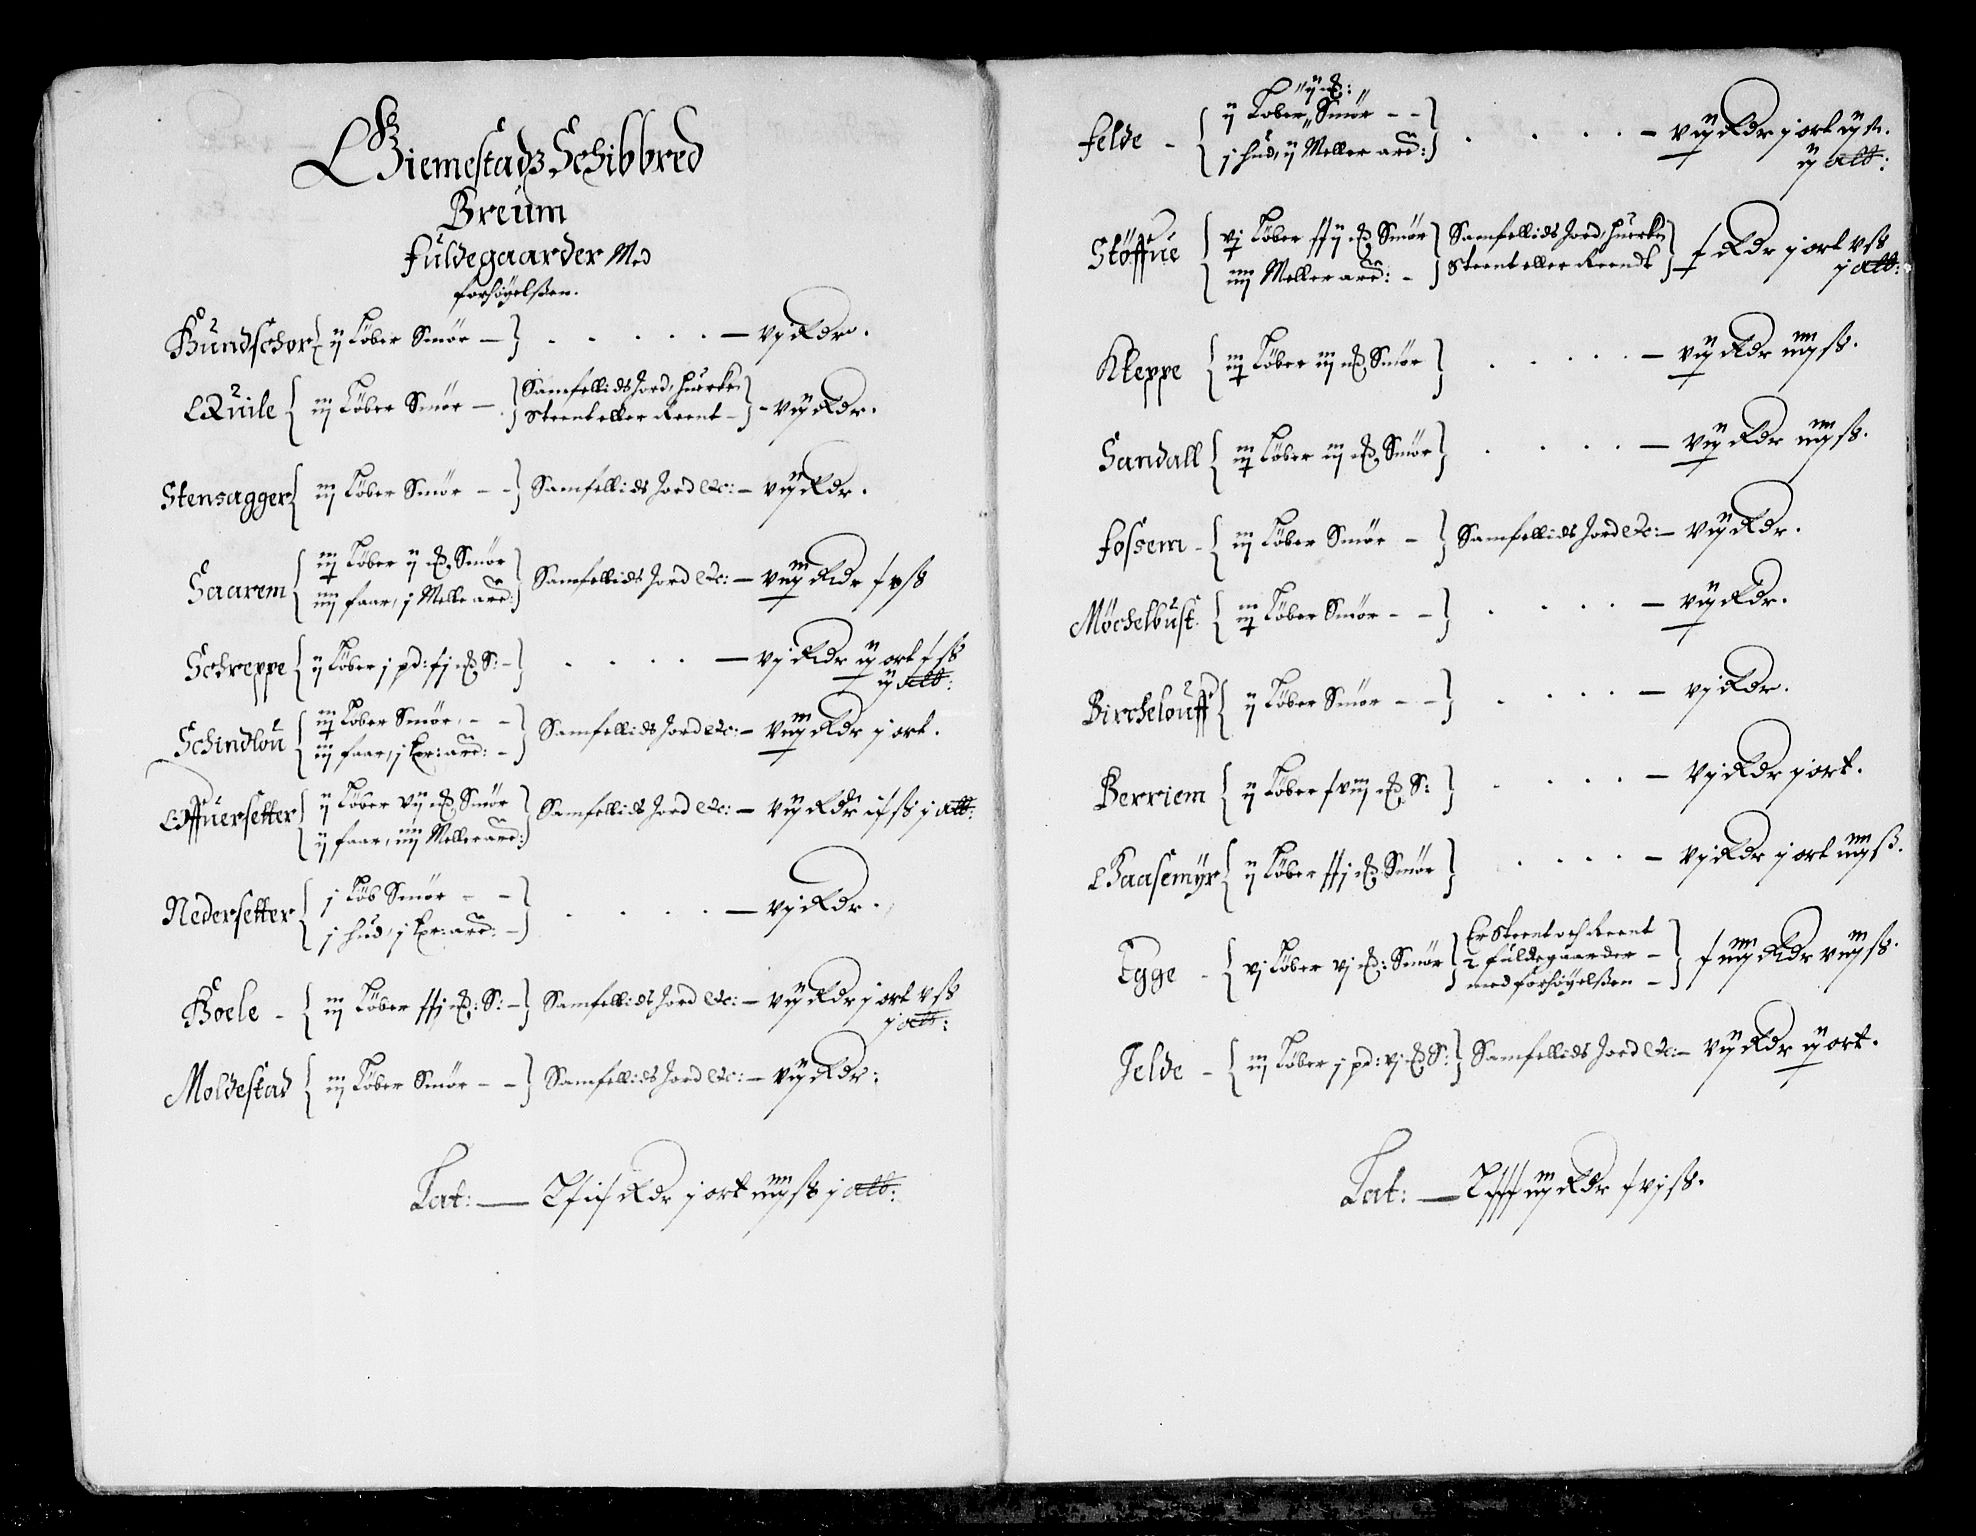 Giemestadz Schibbred
Breum
fuldegaarder Med
forhøyelßen.
Bundschor { ij Løber Smør — } . . . . . — vj Rdr.
Quile { iij Løber Smør — } Samfellids Jord, huercken
Steent eller Reent — } - vij Rdr.
Stensagger { iij Løber Smør - - } Samfellids Jord etc: — vij Rdr.
Saarem { iij Løber ij mk Smør
iiij faar, j Melle are: } Samfellids Jord etc: — viij Rdr xv ß
Schreppe { ij Løber j pd: xj mk S: - } . . . . — vj Rdr iij ort x ß
ij alb:
Schindlou { iij Løber Smør, - -
iij faar, j Lpr: are: - } Samfellids Jord etc: — viij Rdr j ort.
Offuersetter { ij Løber vij mk Smør
ij faar, iiij Meller are: } Samfellids Jord etc: — vij Rdr ix ß j alb:
Nedersetter { j Løb Smør - -
j hud, j Lpr: are: - } . . . . — vj Rdr.
Boele - { iij Løber xxj mk: S: - } Samfellids Jord etc: — vij Rdr j ort v ß
j alb:
Moldestad { iij Løber Smør - - } Samfellids Jord etc: — vij Rdr:
Lat: — Lxix Rdr j ort iiij ß j alb:
ij mk:
felde - { ij Løber Smør - -
j hud, ij Meller are: } . . . . — vij Rdr j ort iij ß.
ij alb:
Støffue { vj Løber xxij mk Smør
iiij Meller are: - } Samfellids Jord, huercken
Steent eller Reendt } x Rdr j ort v ß
j alb:
Kleppe { iij Løber iij mk Smør } . . . . — vij Rdr iiij ß.
Sandall { iij Løber iij mk Smør } . . . . — vij Rdr iiij ß.
fossem - { iij Løber Smør - } Samfellids Jord etc: — vij Rdr.
Møchelbust. { iij Løber Smør - - } . . . . — vij Rdr.
Birchelouff { ij Løber Smør - - } . . . . — vj Rdr.
Berriem { ij Løber xviij mk S: } . . . . — vj Rdr j ort.
Kaasemyr { ij Løber xxj mk Smør } . . . . — vj Rdr j ort iiij ß.
Egge - { vj Løber vj mk: Smør } Er Steent och Reent
2 fuldegaarder -
med forhøyelßen - } xiiij Rdr viij ß.
Jelde - { iij Løber j pd: vj mk S: } Samfellids Jord etc: — vij Rdr iij ort.
Lat: — Lxxxiij Rdr xvj ß.